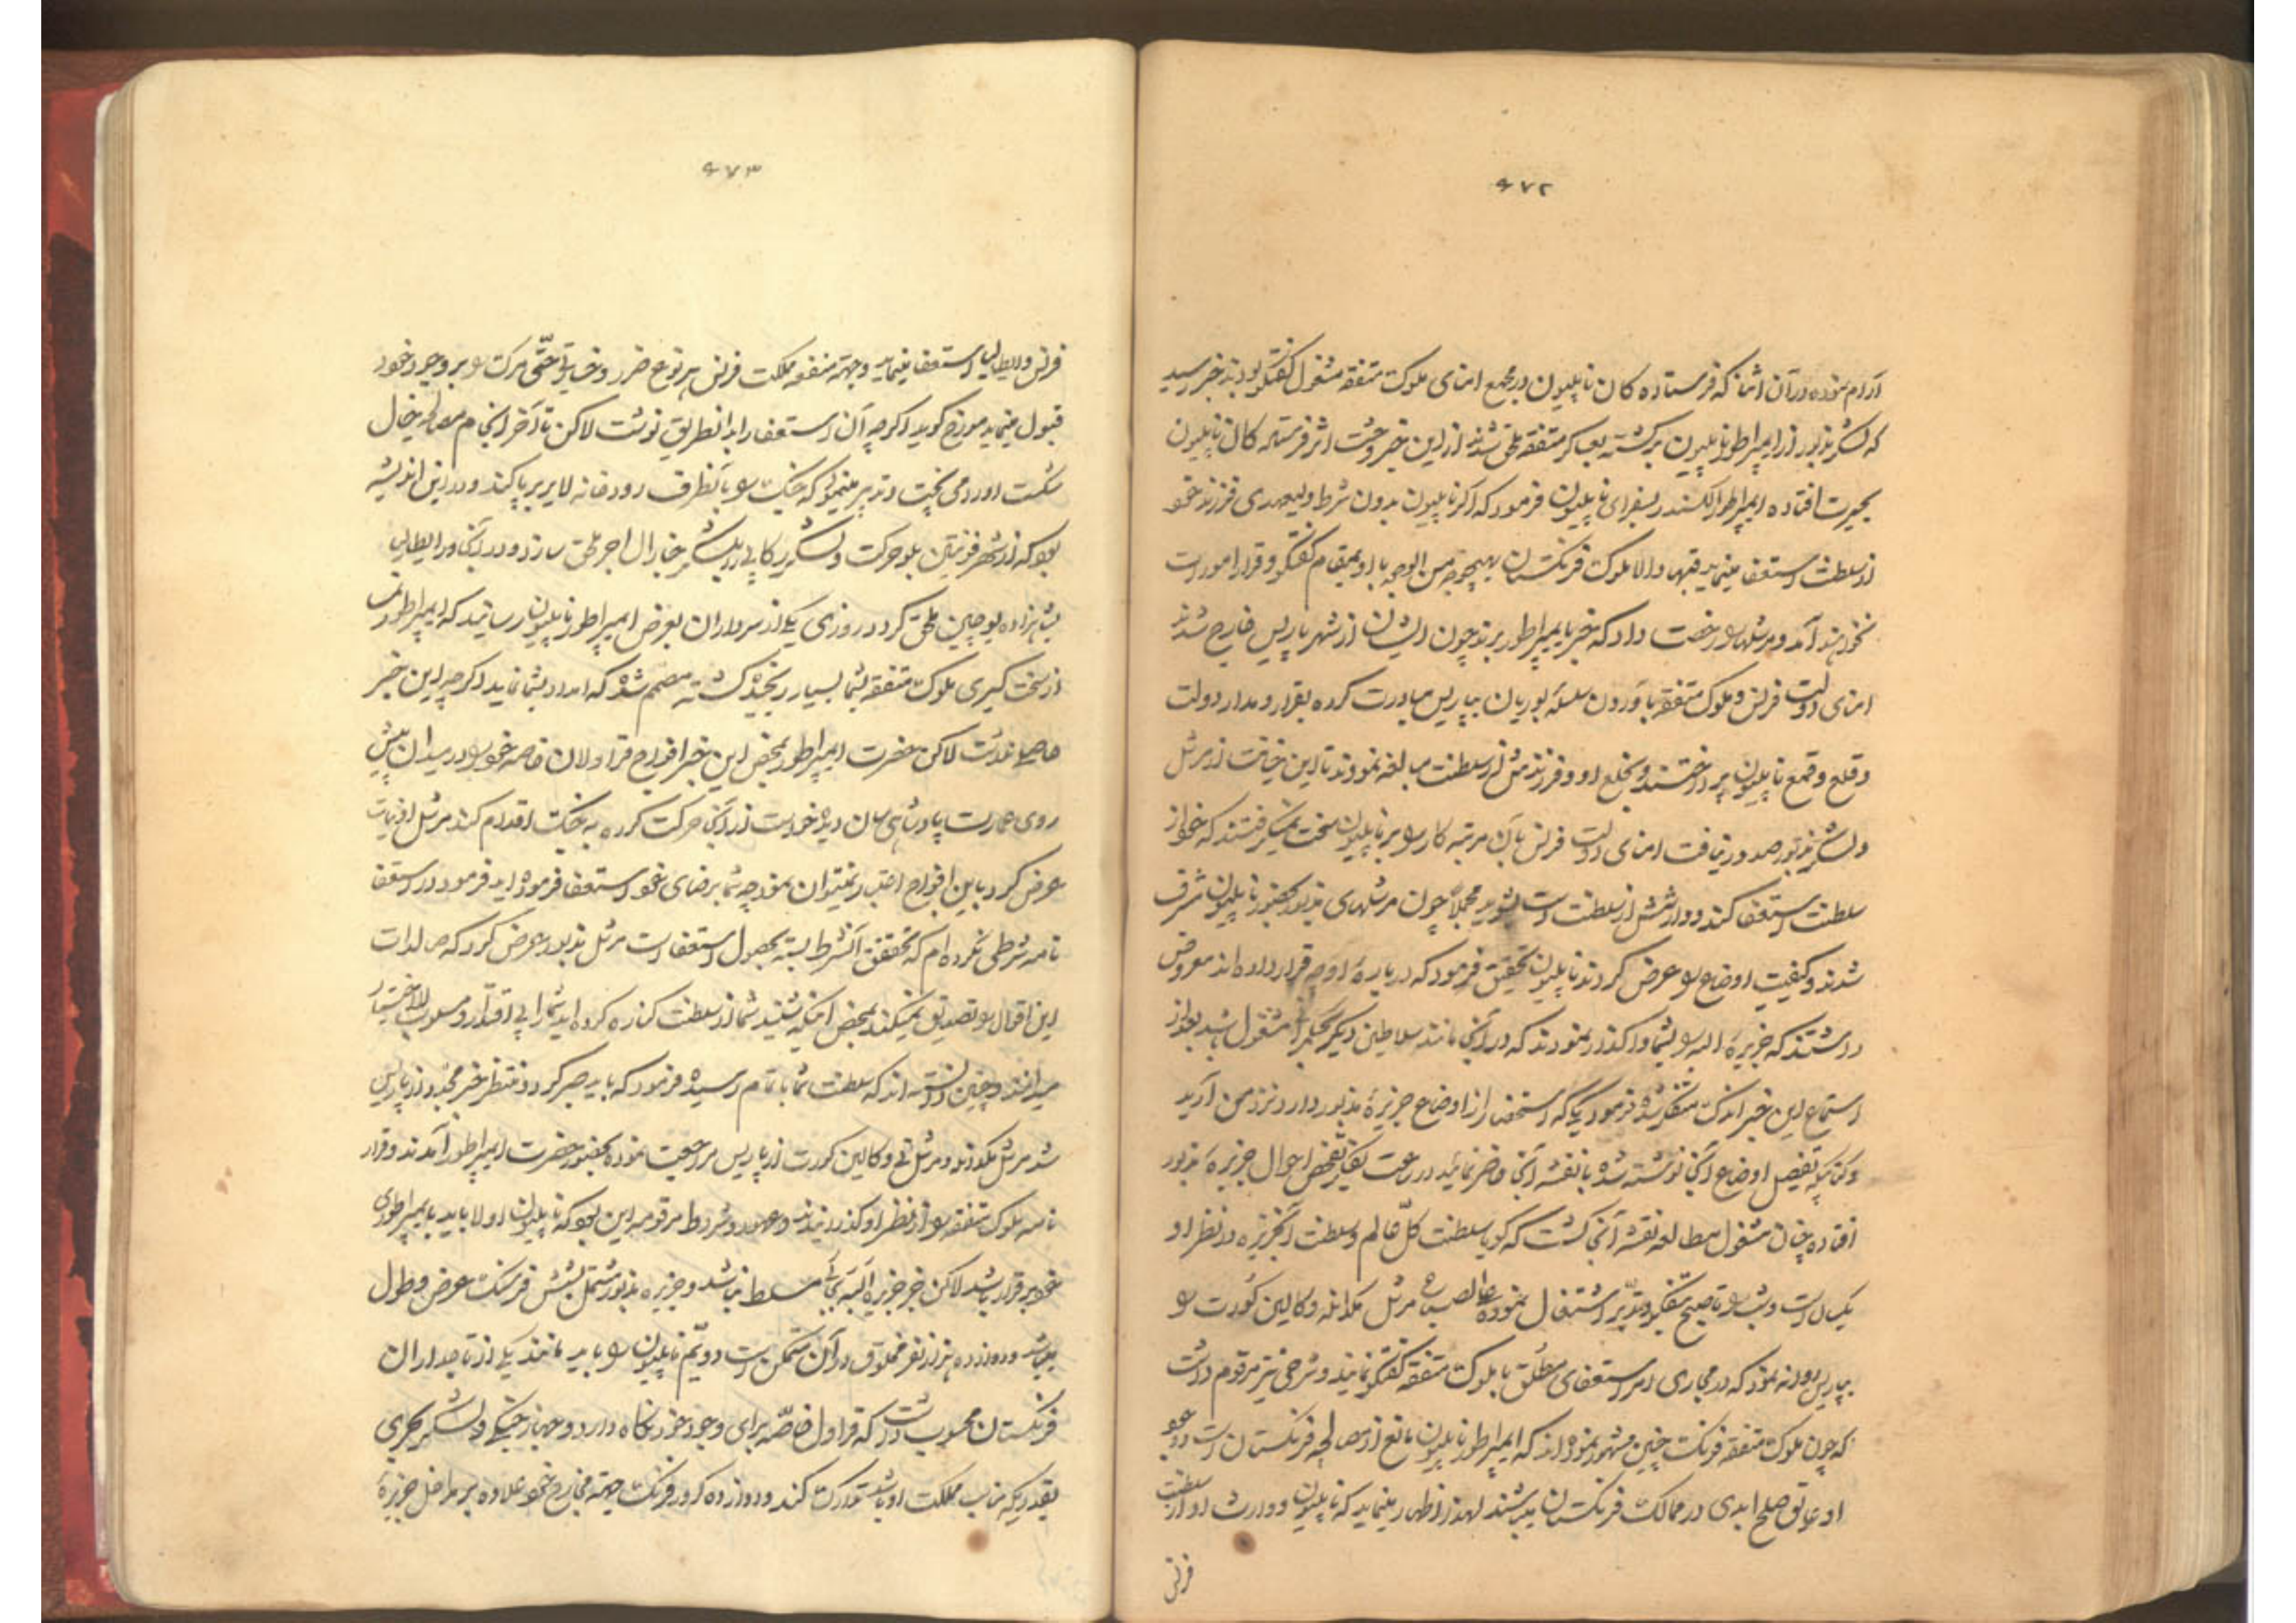 ۶۷۲
آرام نموده در آن اثنا که فرستاده کان ناپلیون در مجمع امنای ملوک متفقه مشغول گفتگو بودند خبر رسید
که لشکر مزبور از ایمپراطور ناپلیون برگشته بعساکر متفقه ملحق شدند از این خبر وحشت اثر فرستاده کان ناپلیون
بحیرت افتاده ایمپراطور الکسندر بسفرای ناپلیون فرمود که اگر ناپلیون بدون شرط ولیعهدی فرزند خود
از سلطنت استعفا مینماید فبها والا ملوک فرنگستان بهیچوجه من الوجوه با او بمقام گفتگو و قرار امورات
نخواهند آمد و مرشلها را رخصت داد که خبر بایمپراطور برند چون ایشان از شهر پاریس خارج شدند
امنای دولت فرانس و ملوک متفقه بآوردن سلسله بوربان بپاریس مبادرت کرده بقرار و مدار دولت
و قلع و قمع ناپلیون پرداختند و بخلع او و فرزندش از سلطنت مبالغه نمودند تا این خیانت از مرشل
و لشکر مزبور صدور نیافت امنای دولت فرانس بآن مرتبه کار را بر ناپلیون سخت نمیگرفتند که خود از
سلطنت استعفا کند و وارثش از سلطنت دست بشوید مجملاً چون مرشلهای مزبور بحضور ناپلیون مشرف
شدند و کیفیت اوضاع را عرض کردند ناپلیون تحقیق فرمود که درباره او چه قرار داده اند معروض
داشتند که جزیره البه را بشما واگذار نمودند که در آنجا مانند سلاطین دیگر بحکمرانی مشغول باشید بعد از
استماع این خبر اندک متفکر شده فرمود یکی که استحضار از اوضاع جزیره مذبور دارد نزد من آرید
و کتابیکه تفصیل اوضاع آنجا نوشته شده با نقشه آنجا حاضر نمائید در ساعت بفکر تفحص احوال جزیره مذبور
افتاده چنان مشغول مطالعه نقشه آنجا گشت که گویا سلطنت کل عالم و سلطنت آنجزیره در نظر او
یکسان است و شب را تا صبح بتفکر و تدبر اشتغال نموده علی الصباح مرشل مکدانلد و کالین کورت را
بپاریس روانه نمود که در مجاری امر استعفای مطلق با ملوک متفقه گفتگو نمایند و شرحی نیز مرقوم داشت
که چون ملوک متفقه فرنگ چنین مشهور نموده اند که ایمپراطور ناپلیون مانع از مصالحه فرنگستان است و وجود
او عایق صلح ابدی در ممالک فرنگستان میباشند لهذا اظهار مینماید که ناپلیون و وارث او از سلطنت
فرانس
۶۷۳
فرانس و ایطالیا استعفا مینماید و جهة منفعه مملکت فرانس هر نوع ضرر و خسارت حتی مرگ را بر وجود خود
قبول مینماید مورخ گوید اگرچه آن استعفا را بدانطریق نوشت لاکن تا آخر انجام مصالحه خیال
شکست اورا می پخت و تدبیر مینمود که جنگ را بآنطرف رودخانه لایر برپا کند و در این اندیشه
بود که از شهر فونتین بلو حرکت و لشکریکه با اوست بلشکر جنارال اجرو ملحق سازد و در آنجا ور ایطالیا
بشاهزاده یوجین ملحق گردد روزی یکی از سرداران بعرض ایمپراطور ناپلیون رسانید که ایمپراطور نمسه
از سخت گیری ملوک متفقه بشما بسیار رنجیده گشته مصمم شده که امداد بشما نماید اگرچه این خبر
اصلی نداشت لاکن حضرت ایمپراطور بمحض این خبر افواج قراولان خاصه خود را در میدان پیش
روی عمارت پادشاهی سان دیده خواست از آنجا حرکت کرده به جنگ اقدام کند مرشل اودینات
عرض کرد باین افواج اعتبار نمیتوان نمود چه شما برضای خود استعفا فرموده اید فرمود در استعفا
نامه شرطی کرده ام که تحقق آنشرط بسته بحصول استعفا است مرشل مذبور عرض کرد که سالدات
این اقوال را تصدیق نمیکنند بمحض اینکه شنیدند شما از سلطنت کناره کرده اید شما را بی اقتدار و مسلوب الاختیار
میدانند و چنین دانسته اند که سلطنت شما باتمام رسیده فرمود که باید صبر کرد و منتظر خبر مجدد از پاریس
شد مرشل مکدانلد و مرشل نی و کالین کورت از پاریس مراجعت نموده بحضور حضرت ایمپراطور آمدند و قرار
نامه ملوک متفقه را از نظر او گذرانیدند و عهود و شروط مرقومه این بود که ناپلیون اولا باید بایمپراطوری
خود برقرار باشد لاکن جز جزیره البه بجائی مسلط نباشد و جزیره مذبور مشتمل بشش فرسنگ عرض و طول
میباشد و دوازده هزار نفر مخلوق در آن متمکن است دویم ناپلیون را باید مانند یکی از تاجداران
فرنگستان محسوب داشت که قراول خاصه برای وجود خود نگاه دارد و جهاز جنگی و لشکر بحری
بقدریکه مناسب مملکت او باشد تدارک کند و دوازده کرور فرنگ جهة مخارج خود علاوه بر مداخل جزیره